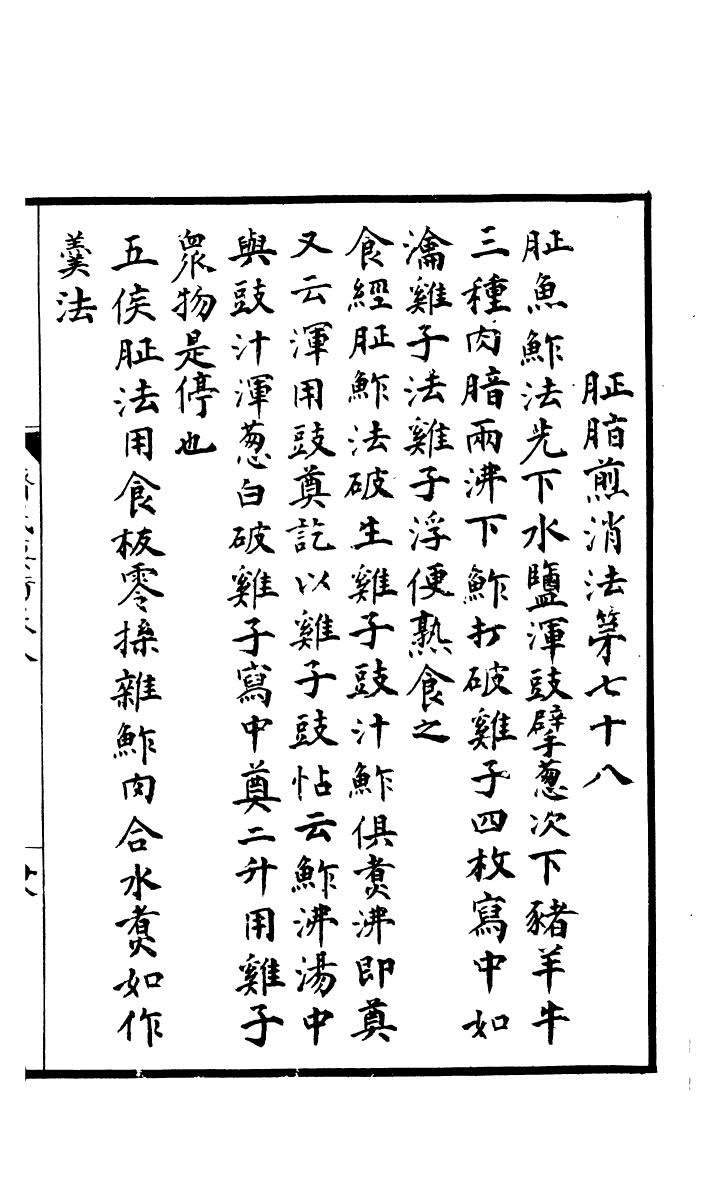 胚腤煎消法第七十八
胚魚鮓法先下水鹽渾豉擘葱次下豬羊牛
三種肉腤兩沸下鮓打破雞子四枚寫中如
瀹雞子法雞子浮便熟食之
食經胚鮓法破生雞子豉汁鮓俱煑沸即奠
又云渾用豉奠訖以雞子豉怗云鮓沸湯中
與豉汁渾葱白破雞子寫中奠二升用雞子
衆物是停也
五侯胚法用食板零揲雜鮓肉合水煑如作
羹法